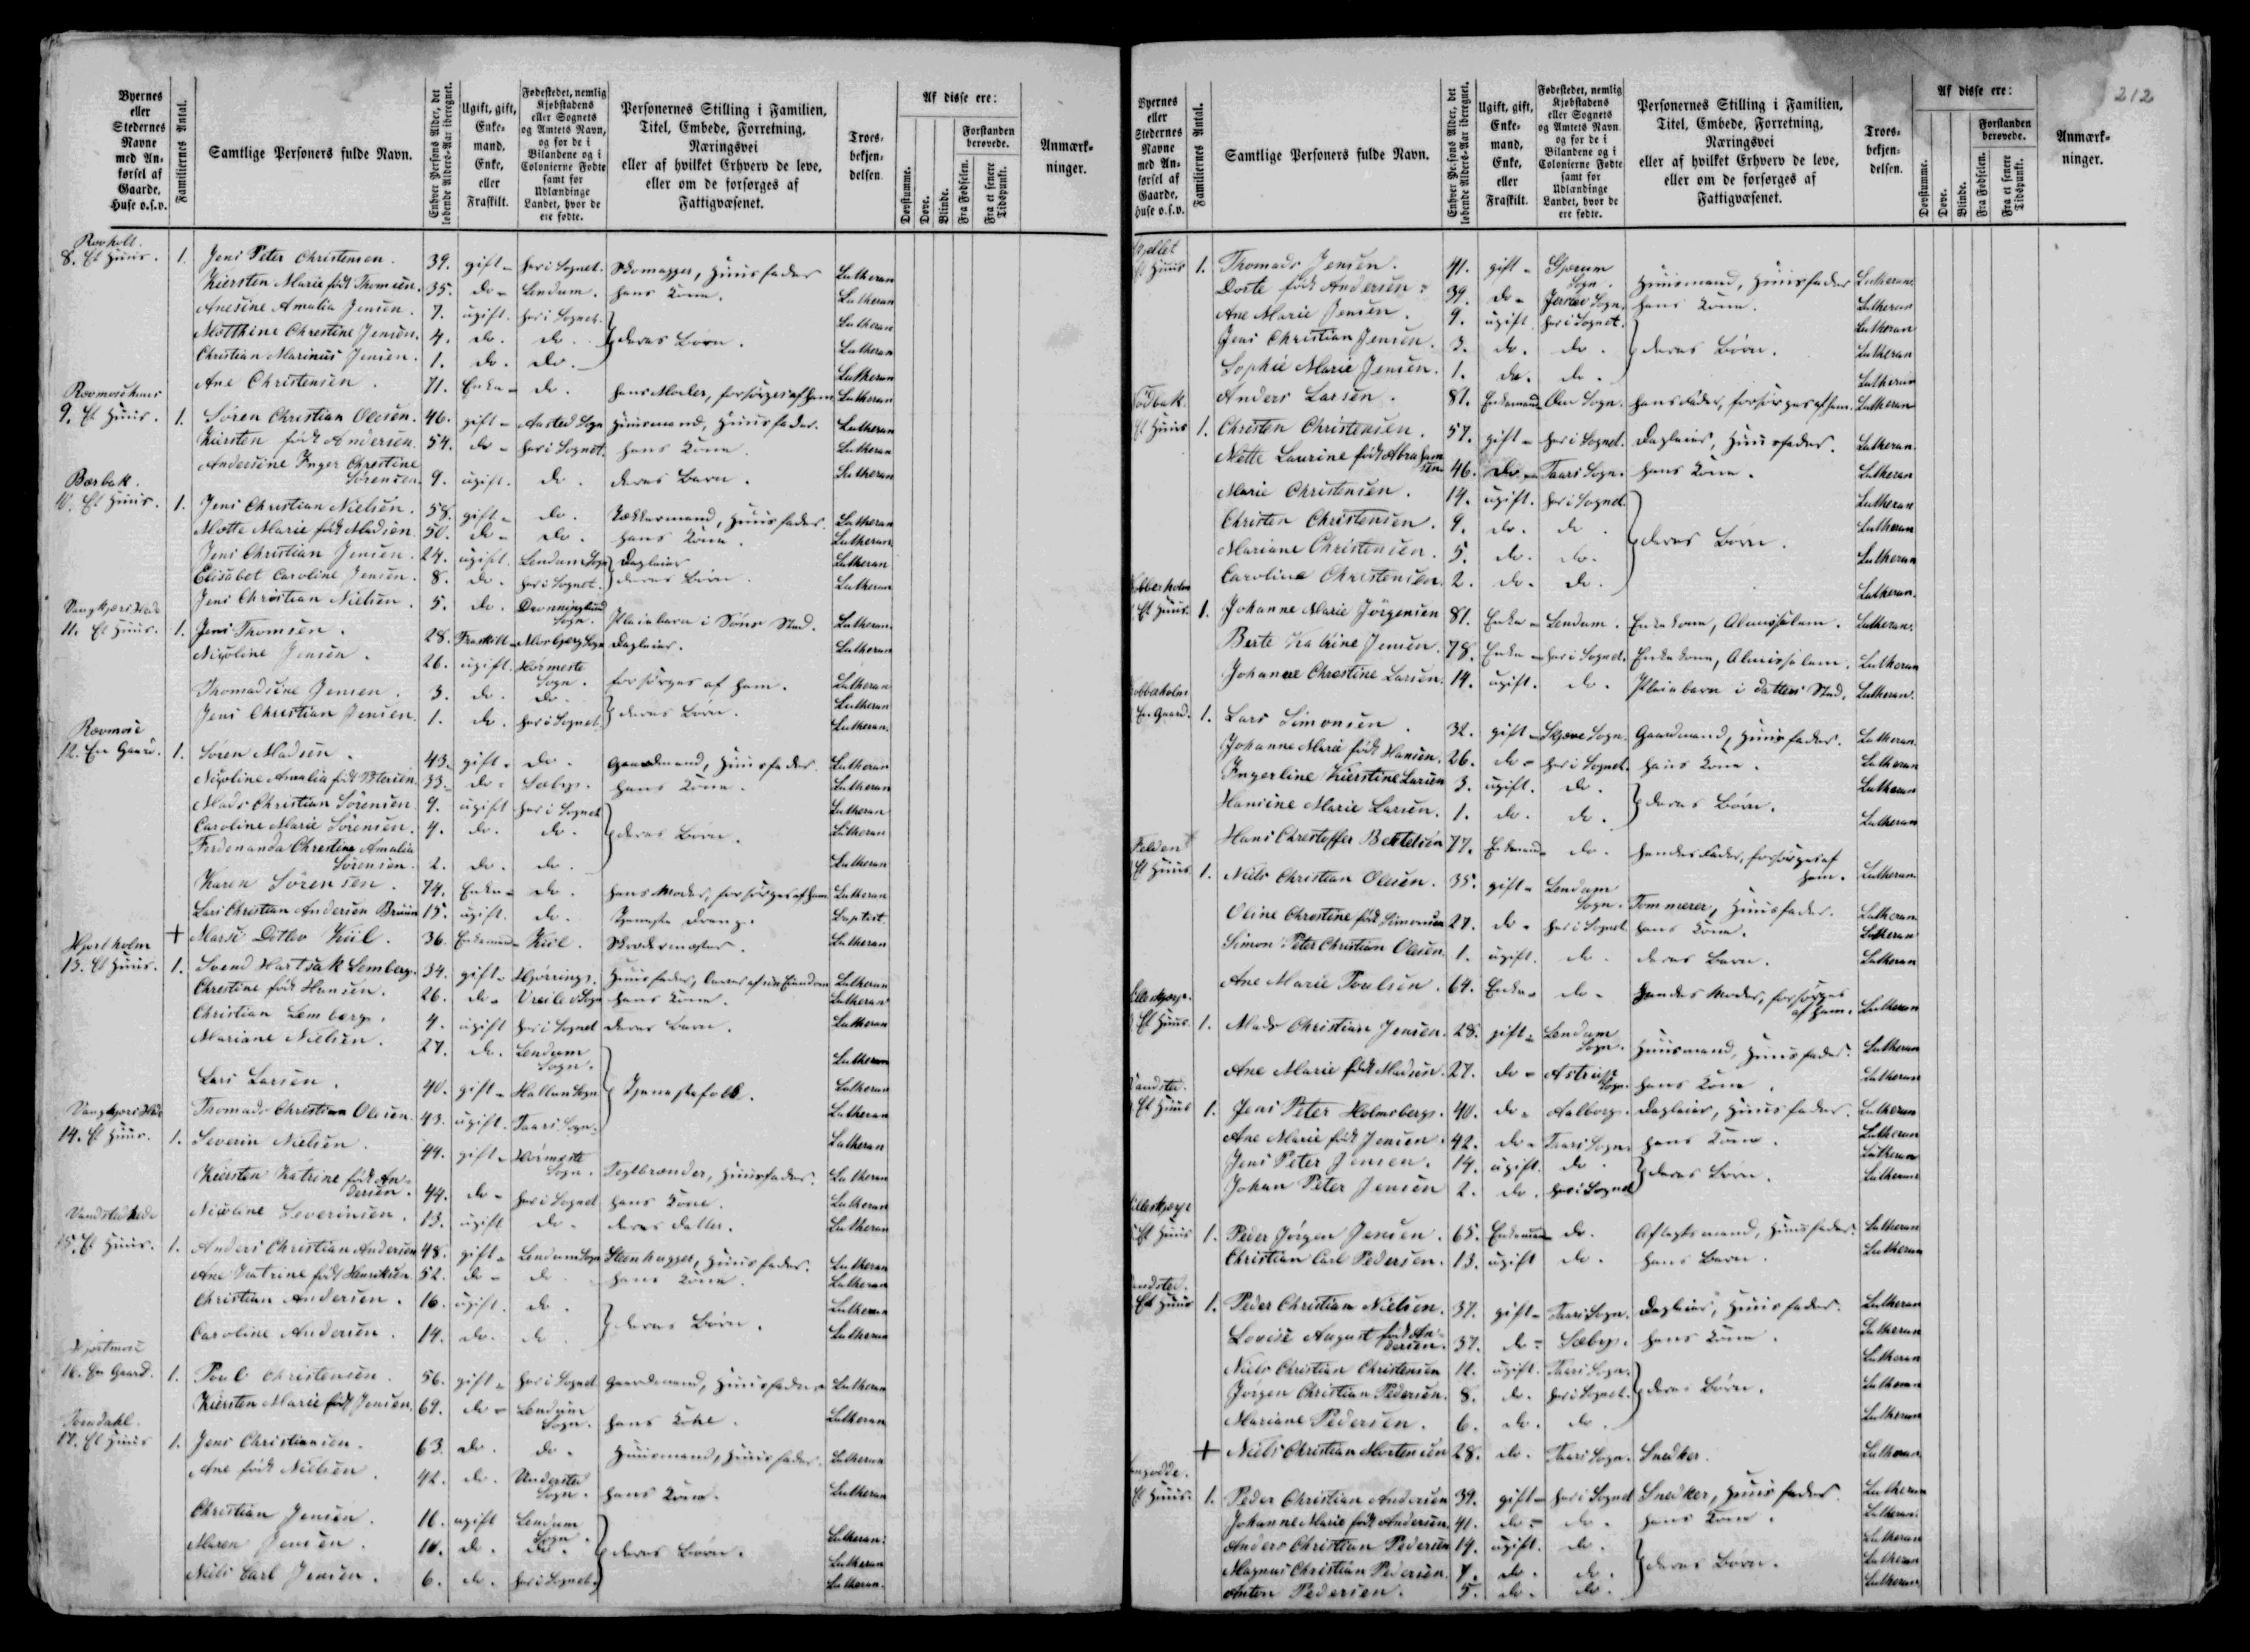 Byernes eller Stedernes Navne med Anførsel af Gaarde, Huse o.s.v.
Familiernes Antal.
Samtlige Personers fulde Navn.
Enhver Persons Alder, det løbende Alders-Aar iberegnet.
Ugift, gift, Enkemand, Enke, eller Fraskilt.
Fødestedet, nemlig Kjøbstadens eller Sognets og Amtets Navn, og for de i Bilandene og i Colonierne Fødte samt for Udlændinge Landet, hvor de ere fødte.
Personernes Stilling i Familien, Titel, Embede, Forretning, Næringsvei eller af hvilket Erhverv de leve, eller om de forsørges af Fattigvæsenet.
Troesbekjendelsen.
Af disse ere:
Døvstumme.
Døve.
Blinde.
Forstanden berøvede.
Fra Fødselen.
Fra et senere Tidspunkt.
Anmærkninger.
8. Et Huus. 1. Jens Peter Christensen. 39. gift - her i Sognet. Skomager, Huusfader Lutheran
Kiersten Marie født Thomsen. 35. do - Lendum. hans Kone. Lutheran
Anesine Amalia Jensen. 7. ugift. her i Sognet. Lutheran
Christine Jensen. 4. do. do. } deres Børn. Lutheran
Christian Marinus Jensen. 1. do. do. Lutheran
Ane Christensen. 71. Enke - do. hans Moder, forsørges af ham Lutheran
9. Et Huus. 1. Søren Christian Olesen. 46. gift - Aasted Sogn Huusmand, Huusfader. Lutheran
Kiersten født Andersen. 54. do - her i Sognet. hans Kone. Lutheran
Andersine Inger Christine
Sørensen 9. ugift. do. deres Barn. Lutheran
Bærbak.
10. Et Huus. 1. Jens Christian Nielsen. 58. gift - do. Huusfader. Lutheran
Mette Marie født Madsen. 50. do - do. hans Kone. Lutheran
Jens Christian Jensen. 24. ugift. Lendum Sogn Dagleier Lutheran
Elisabet Caroline Jensen. 8. do. her i Sognet. deres Børn. Lutheran
Jens Christian Nielsen. 5. do. Dronninglund
Sogn. Pleiebarn i Søns Sted. Lutheran
11. Et Huus. 1. Jens Thomsen. 28. Fraskilt - Mosbjerg Sogn Dagleier. Lutheran
Nicoline Jensen. 26. ugift. Hørmeste
Sogn. forsørges af ham. Lutheran
Thomasine Jensen. 3. do. do. Lutheran
Jens Christian Jensen. 1. do. her i Sognet. } deres Børn. Lutheran
Rævmose
12. En Gaard. 1. Søren Madsen. 43. gift - do. Gaardmand, Huusfader. Lutheran
Nicoline Amalia født Petersen. 33. do - Sæby. hans Kone. Lutheran
Mads Christian Sørensen. 9. ugift her i Sognet Lutheran
Caroline Marie Sørensen. 4. do. do. } deres Børn. Lutheran
Ferdenanda Christine Amalia
Sørensen. 2. do. do. Lutheran
Karen Sørensen. 74. Enke - do. hans Moder, forsørges af ham Lutheran
Lars Christian Andersen Bruun 15. ugift. do. Tjeneste Dreng. Baptist.
+ Detlev Kiil. 36. Enkemand - Kiil. Lutheran
Hjortholm
13. Et Huus. 1. Svend Hartsak Lemberg. 34. gift - Hjørring. Huusfader, lever af sin Eiendom Lutheran
Christine født Hansen. 26. do - Vreiled Sogn hans Kone. Lutheran
Christian Lemberg. 4. ugift her i Sognet deres Barn. Lutheran
Mariane Nielsen. 27. do. Lendum
Sogn. Lutheran
Lars Larsen. 40. gift - Hallun Sogn } Tjenestefolk. Lutheran
Thomads Christian Olesen. 43. ugift. Taars Sogn. Lutheran
14. Et Huus. 1. Severin Nielsen. 44. gift - Hørmeste
Sogn. Teglbrænder, Huusfader. Lutheran
Kiersten Katrine født An-
dersen. 44. do - her i Sognet hans Kone. Lutheran
Nicoline Severinsen. 13. ugift do. deres Datter. Lutheran
Vandstedhede
15. Et Huus. 1. Anders Christian Andersen 48. gift - Lendum Sogn Steenhugger, Huusfader. Lutheran
Ane Katrine født Henriksen 52. do - do. hans Kone. Lutheran
Christian Andersen. 16. ugift. do. Lutheran
Caroline Andersen. 14. do. do. } deres Børn. Lutheran
Hjortmose
16. En Gaard. 1. Poul Christensen. 56. gift - her i Sognet Gaardmand, Huusfader Lutheran
Kiersten Marie født Jensen. 69. do - Lendum
Sogn. hans Kone. Lutheran
Torndahl.
17. Et Huus 1. Jens Christiansen. 63. do. do. Huusmand, Huusfader. Lutheran
Ane født Nielsen. 42. do. Understed
Sogn. hans Kone. Lutheran
Christian Jensen. 16. ugift Lendum
Sogn. Lutheran
Maren Jensen. 11. do. do. } deres Børn. Lutheran
Niels Carl Jensen. 6. do. her i Sognet. Lutheran.
212
Byernes eller Stedernes Navne med Anførsel af Gaarde, Huse o.s.v.
Familiernes Antal.
Samtlige Personers fulde Navn.
Enhver Persons Alder, det løbende Alders-Aar iberegnet.
Ugift, gift, Enkemand, Enke, eller Fraskilt.
Fødestedet, nemlig Kjøbstadens eller Sognets og Amtets Navn og for de i Bilandene og i Colonierne Fødte samt for Udlændinge Landet, hvor de ere fødte.
Personernes Stilling i Familien, Titel, Embede, Forretning, Næringsvei eller af hvilket Erhverv de leve, eller om de forsørges af Fattigvæsenet.
Troesbekjendelsen.
Af disse ere:
Døvstumme.
Døve.
Blinde.
Forstanden berøvede.
Fra Fødselen.
Fra et senere Tidspunkt.
Anmærkninger.
Et Huus 1. Thomads Jensen. 41. gift - Gjærum
Sogn. Huusmand, Huusfader Lutheran
Dorte født Andersen. 39. do - Jerslev Sogn. hans Kone. Lutheran
Ane Marie Jensen. 9. ugift. her i Sognet. Lutheran
Jens Christian Jensen. 3. do. do. } deres Børn. Lutheran
Sophie Marie Jensen. 1. do. do. Lutheran
Anders Larsen. 81. Enkemand - Øer Sogn. hans Fader, forsørges af ham. Lutheran
Et Huus 1. Christen Christensen. 57. gift - her i Sognet. Dagleier, Huusfader. Lutheran
Mette Laurine født Abraham
sen 46. do - Taars Sogn. hans Kone. Lutheran
Marie Christensen. 14. ugift. her i Sognet. Lutheran
Christen Christensen. 9. do. do. Lutheran
Mariane Christensen. 5. do. do. } deres Børn. Lutheran
Caroline Christensen. 2. do. do. Lutheran.
Et Huus. 1. Johanne Marie Jørgensen 81. Enke - Lendum. Enkekone, Almisselem. Lutheran.
Berte Katrine Jensen. 78. Enke - her i Sognet. Enkekone, Almisselem. Lutheran
Johanne Christine Larsen. 14. ugift. do. Pleiebarn i Datters Sted. Lutheran.
En Gaard. 1. Lars Simonsen 32. gift - Skjæve Sogn. Gaardmand, Huusfader. Lutheran
Johanne Marie født Hansen. 26. do - her i Sognet. hans Kone. Lutheran
Ingerline Kierstine Larsen 3. ugift. do. Lutheran
Hansine Marie Larsen. 1. do. do. } deres Børn. Lutheran
Hans Christoffer Bertelsen 77. Enkemand - do. hendes Fader, forsørges af
ham. Lutheran
Et Huus 1. Niels Christian Olesen. 35. gift - Lendum
Sogn. Tømmerer, Huusfader. Lutheran
Oline Christine født Simonsen 27. do - her i Sognet hans Kone. Lutheran
Simon Peter Christian Olesen. 1. ugift. do. deres Barn. Lutheran
Ane Marie Poulsen. 64. Enke - do - hendes Moder, forsørges
af ham. Lutheran
Et Huus 1. Mads Christian Jensen. 28. gift - Lendum
Sogn. Huusmand, Huusfader. Lutheran
Ane Marie født Madsen. 27. do - Astrup
Sogn. hans Kone. Lutheran
Et Huus 1. Jens Peter Holmsberg. 40. do - Aalborg. Dagleier, Huusfader. Lutheran
Ane Marie født Jensen. 42. do - Taars Sogn hans Kone. Lutheran
Jens Peter Jensen. 14. ugift. do. Lutheran
Johan Peter Jensen 2. do. her i Sognet } deres Børn. Lutheran
Et Huus 1. Peder Jørgen Jensen. 65. Enkemand do. Aftægtsmand, Huusfader. Lutheran
Christian Carl Pedersen. 13. ugift do. hans Barn. Lutheran
Et Huus 1. Peder Christian Nielsen. 37. gift - Taars Sogn. Dagleier, Huusfader. Lutheran
Lovise August født An-
dersen. 37. do - Sæby. hans Kone. Lutheran
Niels Christian Christensen 12. ugift. Taars Sogn. Lutheran
Jørgen Christian Pedersen. 8. do. her i Sognet. } deres Børn. Lutheran
Mariane Pedersen. 6. do. do. Lutheran
+ Niels Christian Mortensen 28. do. Taars Sogn. Snedker. Lutheran
Et Huus. 1. Peder Christian Andersen 39. gift - her i Sognet Snedker, Huusfader Lutheran
Johanne Marie født Andersen. 41. do - do. hans Kone. Lutheran
Anders Christian Pedersen 14. ugift. do. Lutheran
Magnus Christian Pedersen. 7. do. do. } deres Børn. Lutheran
Anton Pedersen. 5. do. do. Lutheran